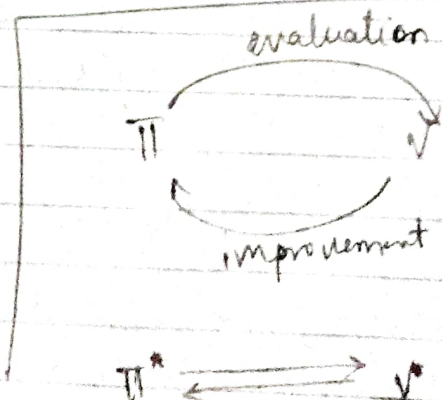 evaluation
π V
improvement
π* V*